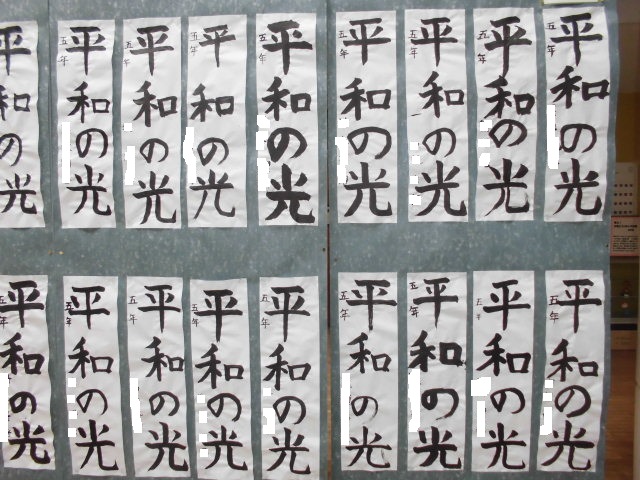 平和の光
五年
平和の光
五年
平和の光
五年
平和の光
五年
平和の光
五年
平和の光
五年
平和の光
五年
平和の光
五年
平和の光
平和の光
五年
平和の光
五年
平和の光
五年
平和の光
五年
平和の光
五年
平和の光
五年
平和の光
五年
平和の光
五年
平和の光
五年